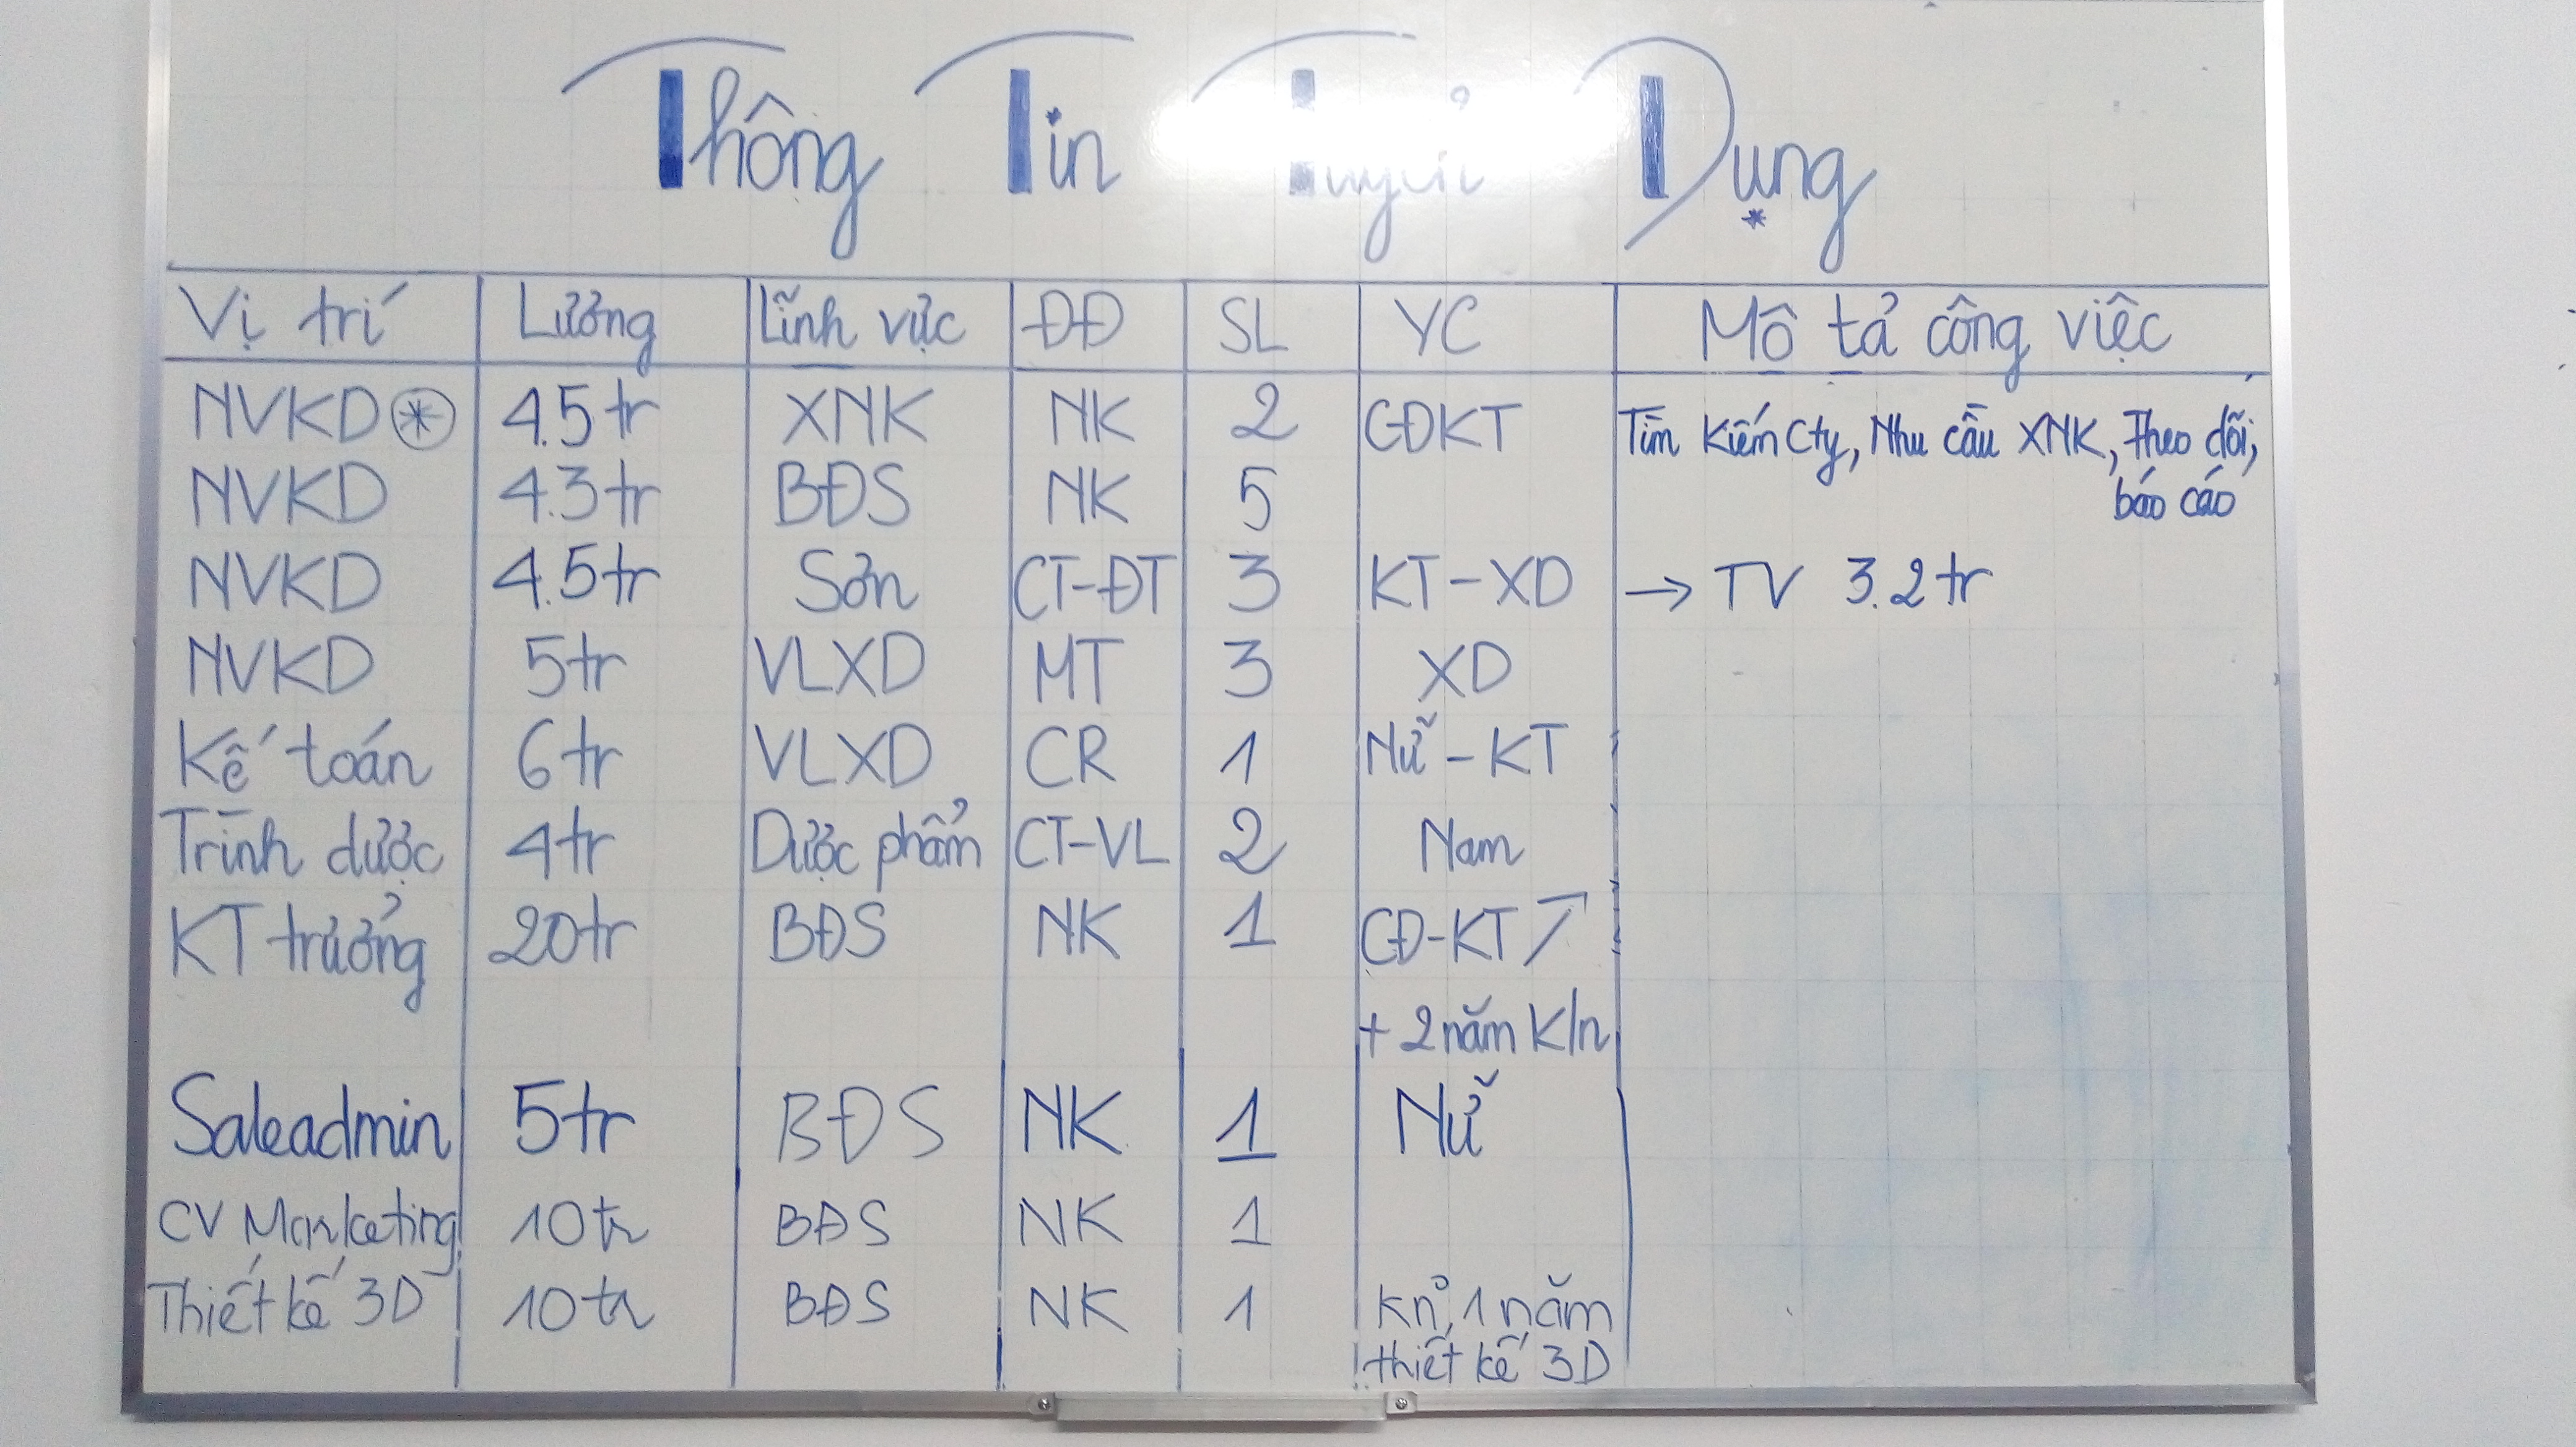 Thông Tin Tuyển Dụng
Vị trí Lương Lĩnh vực ĐĐ SL YC Mô tả công việc
NVKD * 4.5tr XNK NK 2 CĐKT Tìm Kiếm Cty, Nhu cầu XNK, Theo dõi,
báo cáo
NVKD 4.3tr BĐS NK 5
NVKD 4.5tr Sơn CT-ĐT 3 KT-XD → TV 3.2tr
NVKD 5tr VLXD MT 3 XD
Kế toán 6tr VLXD CR 1 Nữ-KT
Trình dược 4tr Dược phẩm CT-VL 2 Nam
KT trưởng 20tr BĐS NK 1 CĐ-KT ↗
+ 2 năm K/n
Saleadmin 5tr BĐS NK 1 Nữ
CV Marketing 10tr BĐS NK 1
Thiết kế 3D 10tr BĐS NK 1 Kn 1 năm
thiết kế 3D